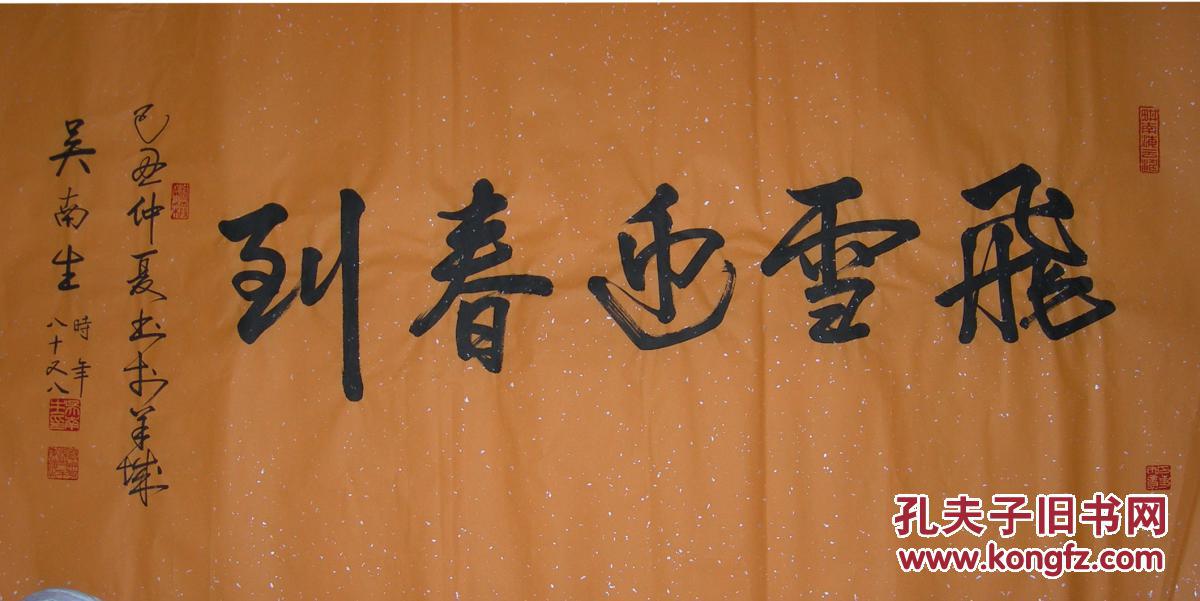 飛雪迎春到
己丑仲夏书於羊城
吴南生
時年
八十又八
孔夫子旧书网
www.kongfz.com